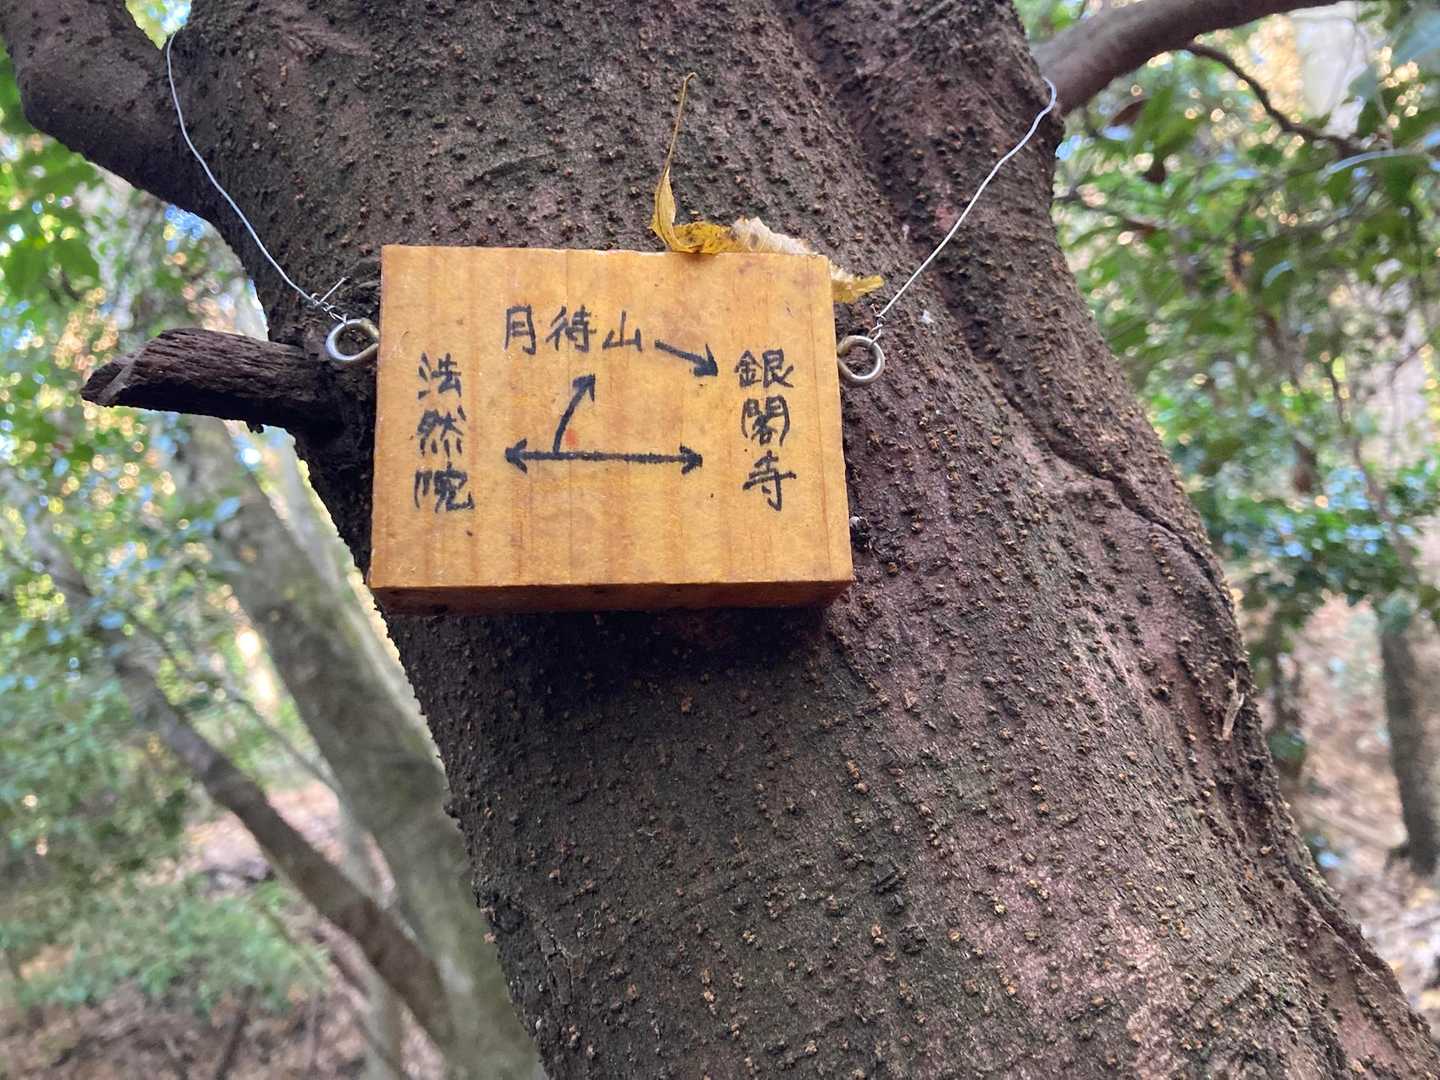 月待山
法然院
銀閣寺